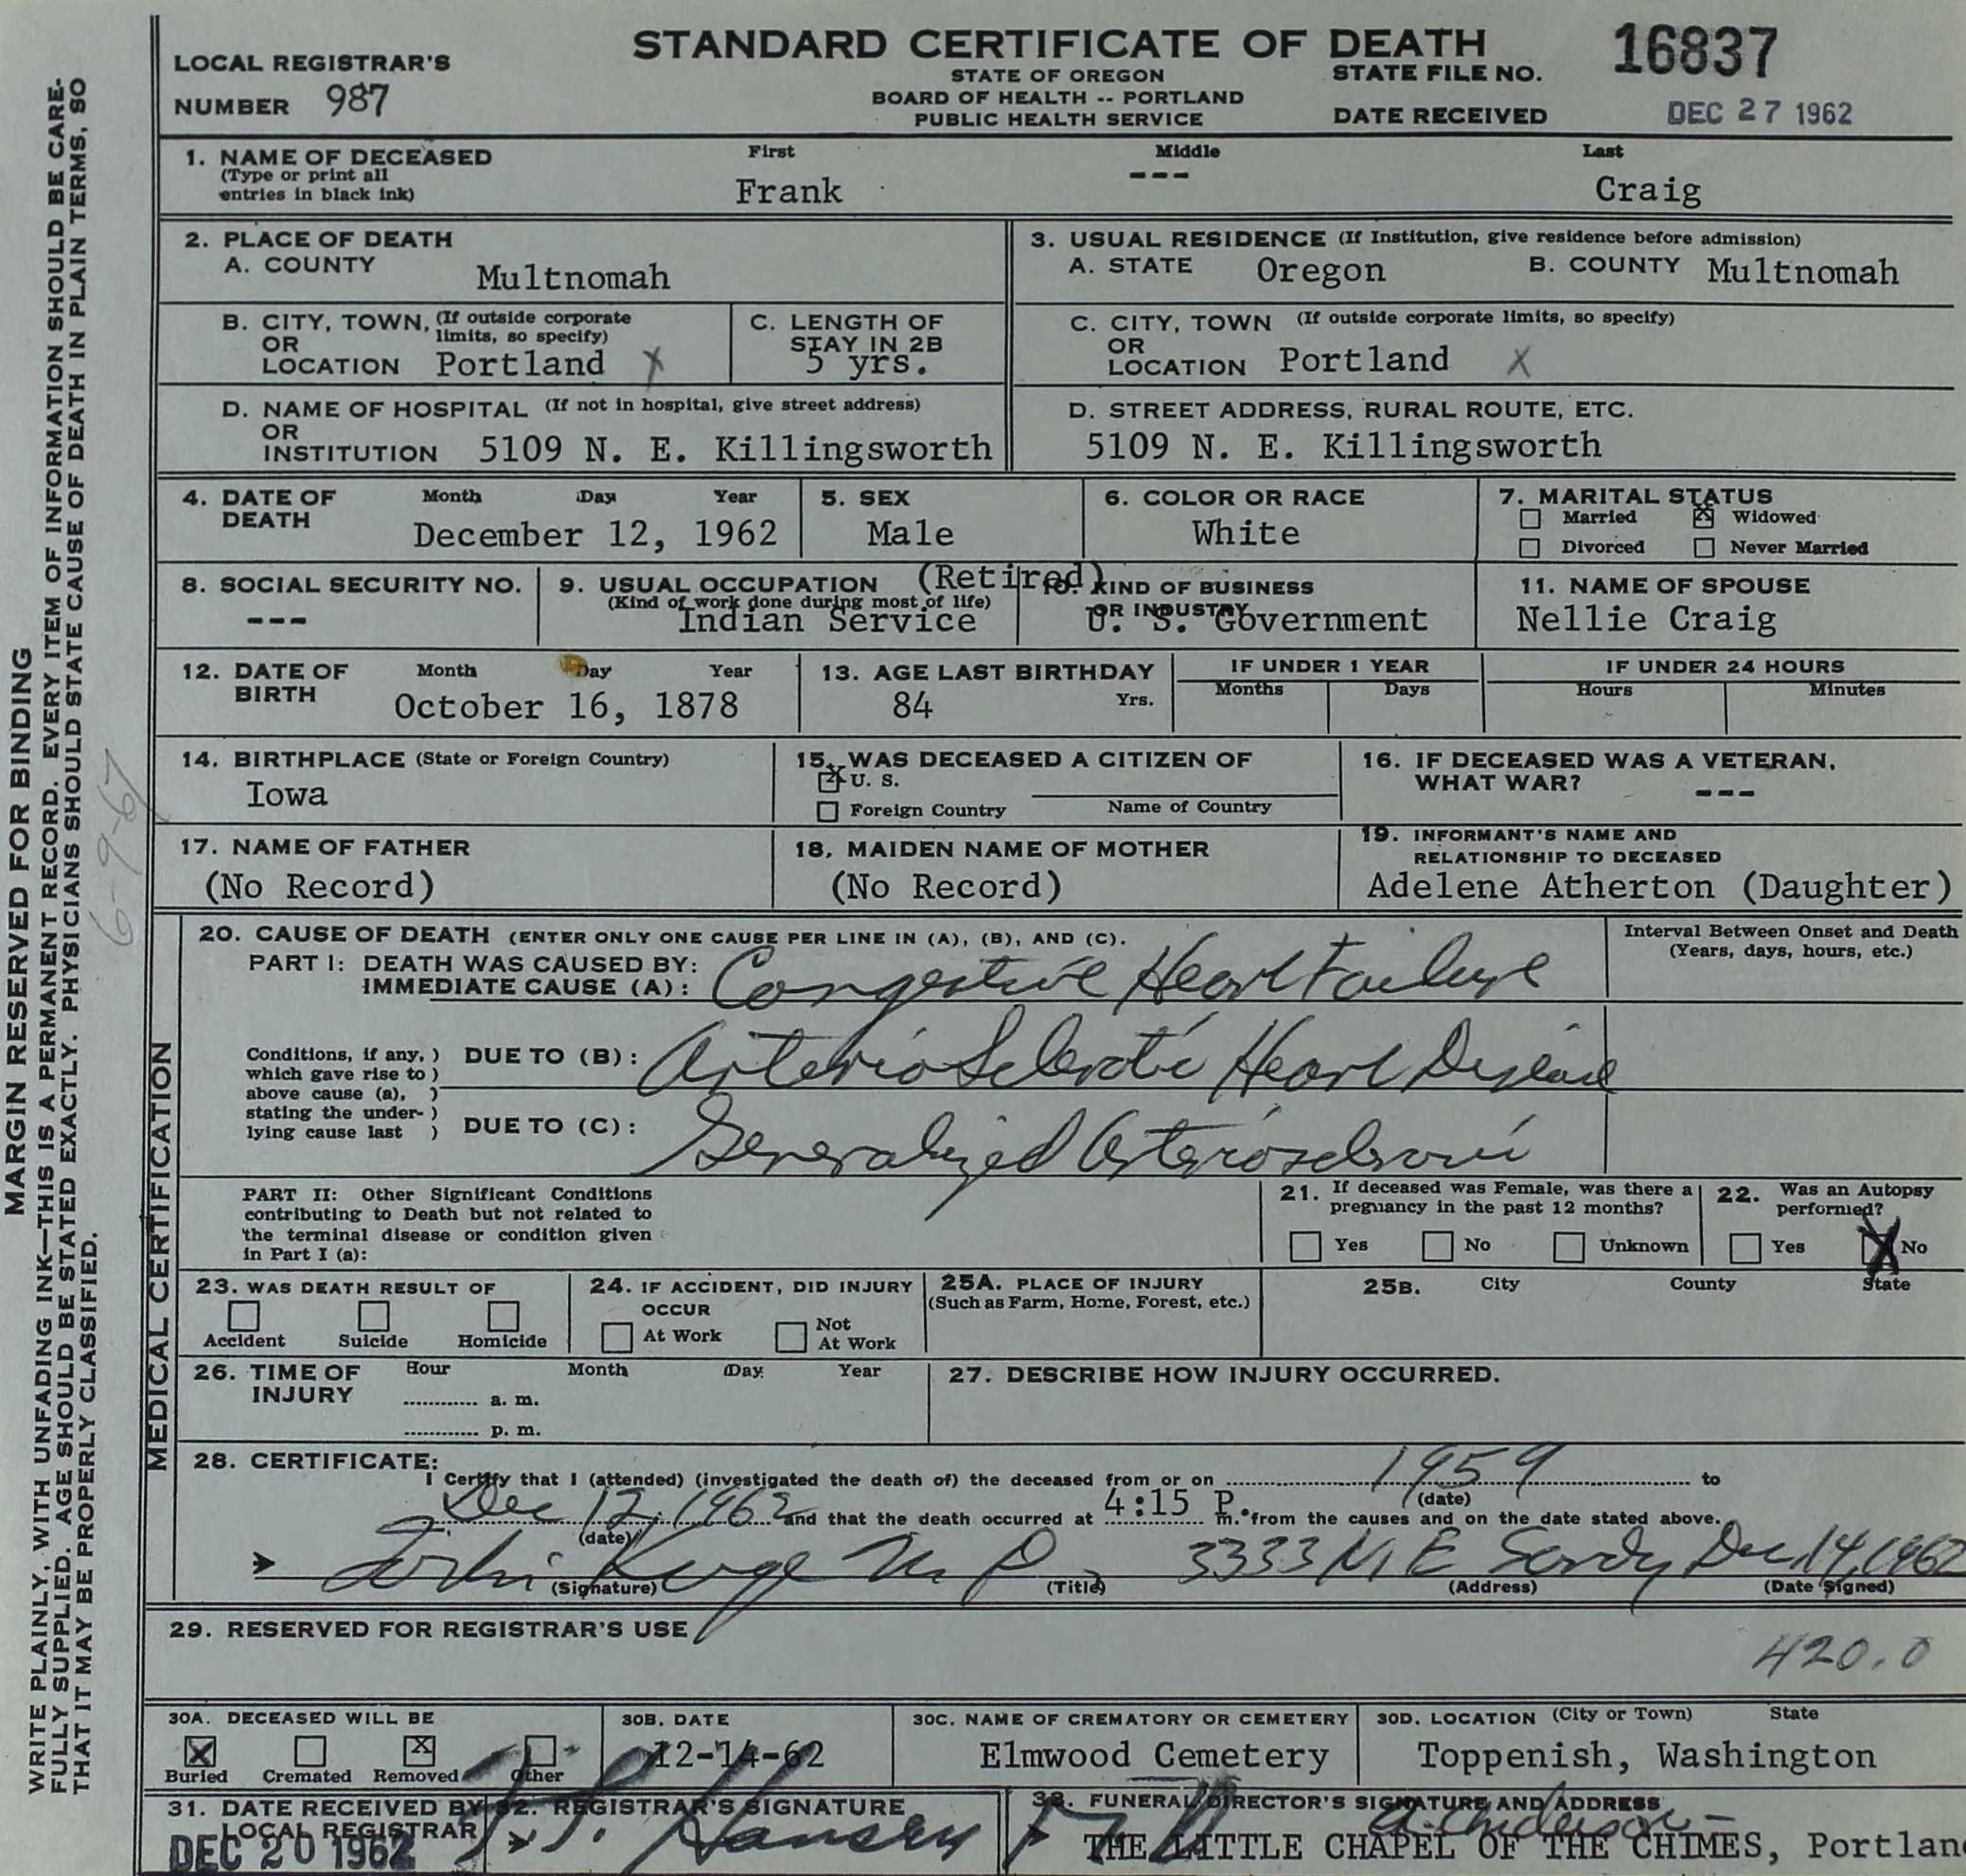 STANDARD CERTIFICATE OF DEATH
STATE OF OREGON
BOARD OF HEALTH -- PORTLAND
PUBLIC HEALTH SERVICE
LOCAL REGISTRAR'S
NUMBER 987
STATE FILE NO. 16837
DATE RECEIVED DEC 27 1962
1. NAME OF DECEASED
(Type or print all
entries in black ink)
First Middle Last
Frank --- Craig
2. PLACE OF DEATH
A. COUNTY Multnomah
B. CITY, TOWN, (If outside corporate
OR limits, so specify)
LOCATION Portland X
C. LENGTH OF
STAY IN 2B
5 yrs.
D. NAME OF HOSPITAL (If not in hospital, give street address)
OR
INSTITUTION 5109 N. E. Killingsworth
3. USUAL RESIDENCE (If Institution, give residence before admission)
A. STATE Oregon B. COUNTY Multnomah
C. CITY, TOWN (If outside corporate limits, so specify)
OR
LOCATION Portland X
D. STREET ADDRESS, RURAL ROUTE, ETC.
5109 N. E. Killingsworth
4. DATE OF
DEATH
Month Day Year
December 12, 1962
5. SEX
Male
6. COLOR OR RACE
White
7. MARITAL STATUS
Married X Widowed
Divorced Never Married
8. SOCIAL SECURITY NO.
---
9. USUAL OCCUPATION (Retired)
(Kind of work done during most of life)
Indian Service
10. KIND OF BUSINESS
OR INDUSTRY
U. S. Government
11. NAME OF SPOUSE
Nellie Craig
12. DATE OF
BIRTH
Month Day Year
October 16, 1878
13. AGE LAST BIRTHDAY
84 Yrs.
IF UNDER 1 YEAR
Months Days
IF UNDER 24 HOURS
Hours Minutes
14. BIRTHPLACE (State or Foreign Country)
Iowa
15. WAS DECEASED A CITIZEN OF
X U. S.
Foreign Country Name of Country
16. IF DECEASED WAS A VETERAN,
WHAT WAR? ---
17. NAME OF FATHER
(No Record)
18. MAIDEN NAME OF MOTHER
(No Record)
19. INFORMANT'S NAME AND
RELATIONSHIP TO DECEASED
Adelene Atherton (Daughter)
MEDICAL CERTIFICATION
20. CAUSE OF DEATH (ENTER ONLY ONE CAUSE PER LINE IN (A), (B), AND (C).
Interval Between Onset and Death
(Years, days, hours, etc.)
PART I: DEATH WAS CAUSED BY:
IMMEDIATE CAUSE (A): Congestive Heart Failure
Conditions, if any, )
which gave rise to )
above cause (a), )
stating the under- )
lying cause last )
DUE TO (B): Arterio Sclerotic Heart Disease
DUE TO (C): Generalized Arteriosclerosis
PART II: Other Significant Conditions
contributing to Death but not related to
the terminal disease or condition given
in Part I (a):
21. If deceased was Female, was there a
pregnancy in the past 12 months?
Yes No Unknown
22. Was an Autopsy
performed?
Yes X No
23. WAS DEATH RESULT OF
Accident Suicide Homicide
24. IF ACCIDENT, DID INJURY
OCCUR
At Work Not
At Work
25A. PLACE OF INJURY
(Such as Farm, Home, Forest, etc.)
25B. City County State
26. TIME OF
INJURY
Hour Month Day Year
............ a. m.
............ p. m.
27. DESCRIBE HOW INJURY OCCURRED.
28. CERTIFICATE:
I Certify that I (attended) (investigated the death of) the deceased from or on 1959 to
(date)
Dec 12, 1962 and that the death occurred at 4:15 P. m. from the causes and on the date stated above.
(date)
M D 3333 N E Sandy Dec 14, 1962
(Signature) (Title) (Address) (Date Signed)
29. RESERVED FOR REGISTRAR'S USE
420.0
30A. DECEASED WILL BE
X Buried Cremated X Removed Other
30B. DATE
12-14-62
30C. NAME OF CREMATORY OR CEMETERY
Elmwood Cemetery
30D. LOCATION (City or Town) State
Toppenish, Washington
31. DATE RECEIVED BY
LOCAL REGISTRAR
DEC 20 1962
32. REGISTRAR'S SIGNATURE
Hansen
33. FUNERAL DIRECTOR'S SIGNATURE AND ADDRESS
THE LITTLE CHAPEL OF THE CHIMES, Portlan
MARGIN RESERVED FOR BINDING
WRITE PLAINLY, WITH UNFADING INK—THIS IS A PERMANENT RECORD. EVERY ITEM OF INFORMATION SHOULD BE CARE-
FULLY SUPPLIED. AGE SHOULD BE STATED EXACTLY. PHYSICIANS SHOULD STATE CAUSE OF DEATH IN PLAIN TERMS, SO
THAT IT MAY BE PROPERLY CLASSIFIED.
6-9-67